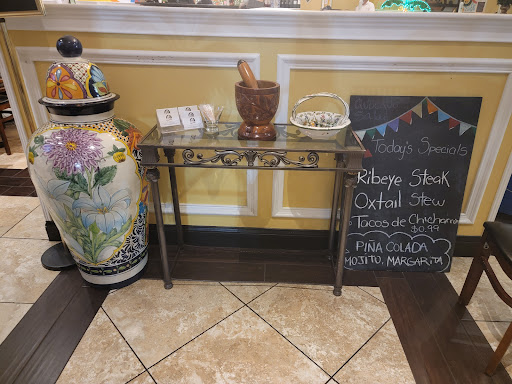 Today's Specials
Ribeye Steak
Oxtail Stew
Tacos de Chicharron
$0.99
PIÑA COLADA
MOJITO, MARGARITA